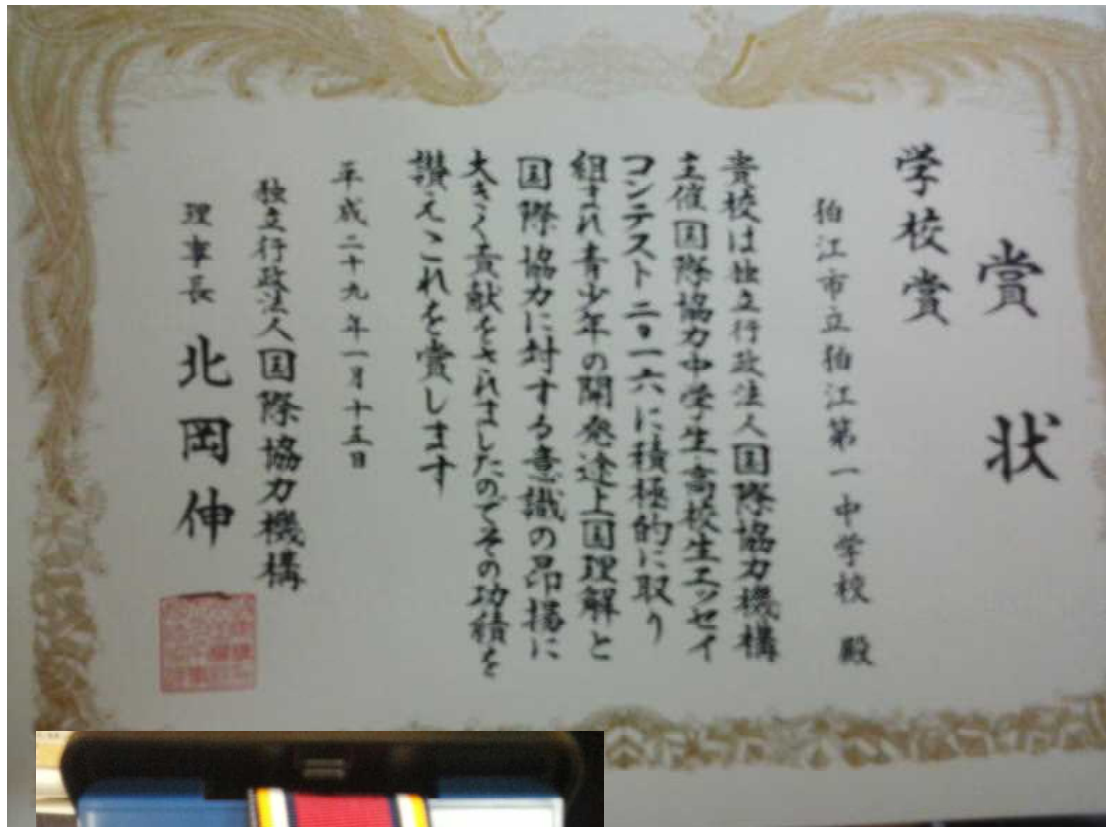 賞状
学校賞
狛江市立狛江第一中学校 殿
貴校は独立行政法人国際協力機構
主催国際協力中学生高校生エッセイ
コンテスト二〇一六に積極的に取り
組まれ青少年の開発途上国理解と
国際協力に対する意識の昂揚に
大きく貢献をされましたのでその功績を
讃えこれを賞します
平成二十九年一月十三日
独立行政法人国際協力機構
理事長 北岡伸一